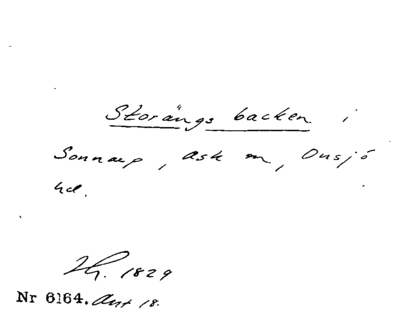 Storängs backen i
Sonnarp, Ask m, Onsjö
hd.
Th. 1829
Nr 6164. Ant 18.